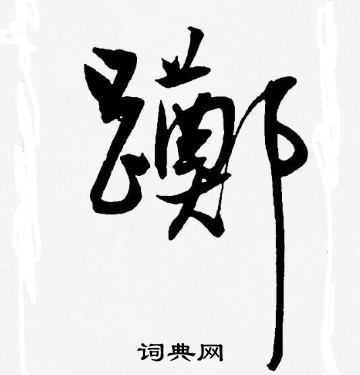 躑
词典网